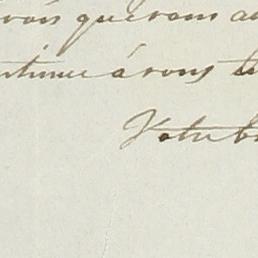 vois que vous a
ntinue à vous
Votre b